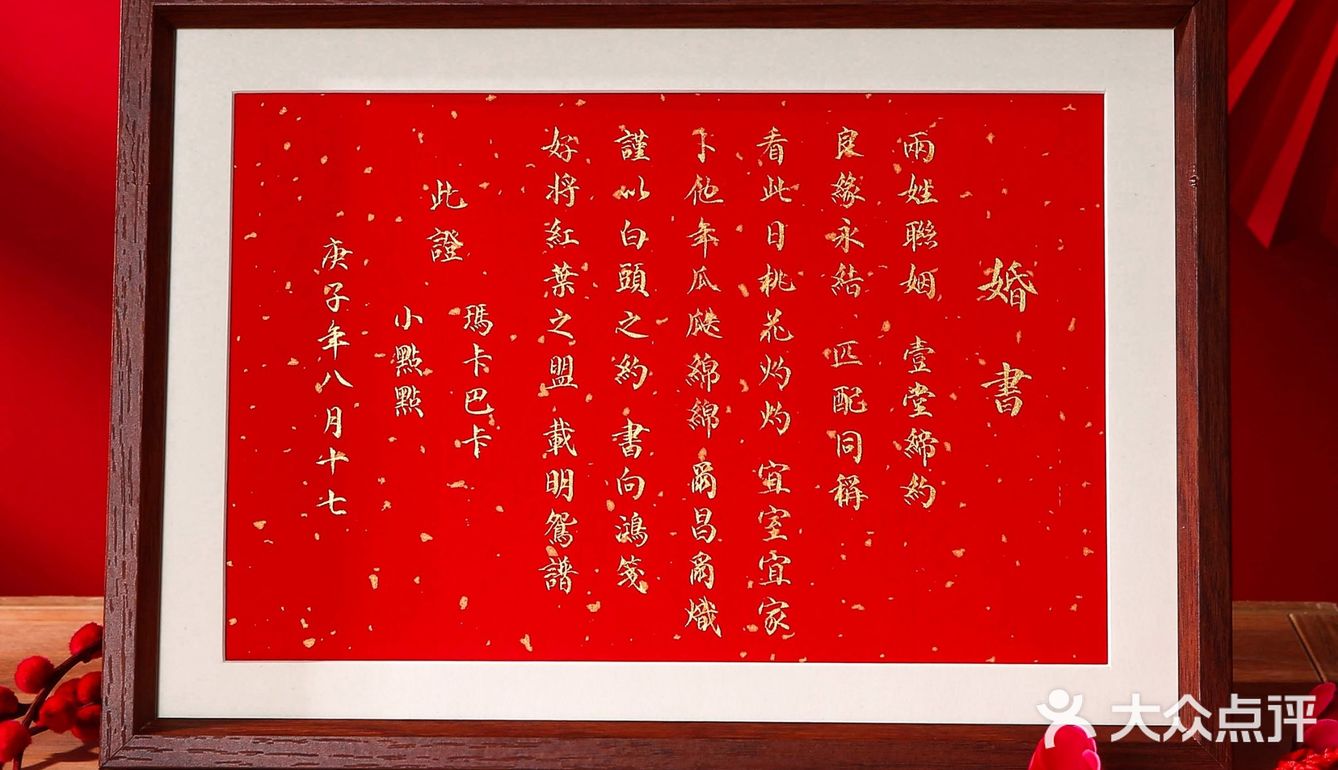 婚書
兩姓聯姻 壹堂締約
良緣永結 匹配同稱
看此日桃花灼灼 宜室宜家
卜他年瓜瓞綿綿 爾昌爾熾
謹以白頭之約 書向鴻箋
好將紅葉之盟 載明鴛譜
此證
瑪卡巴卡
小點點
庚子年八月十七
大众点评